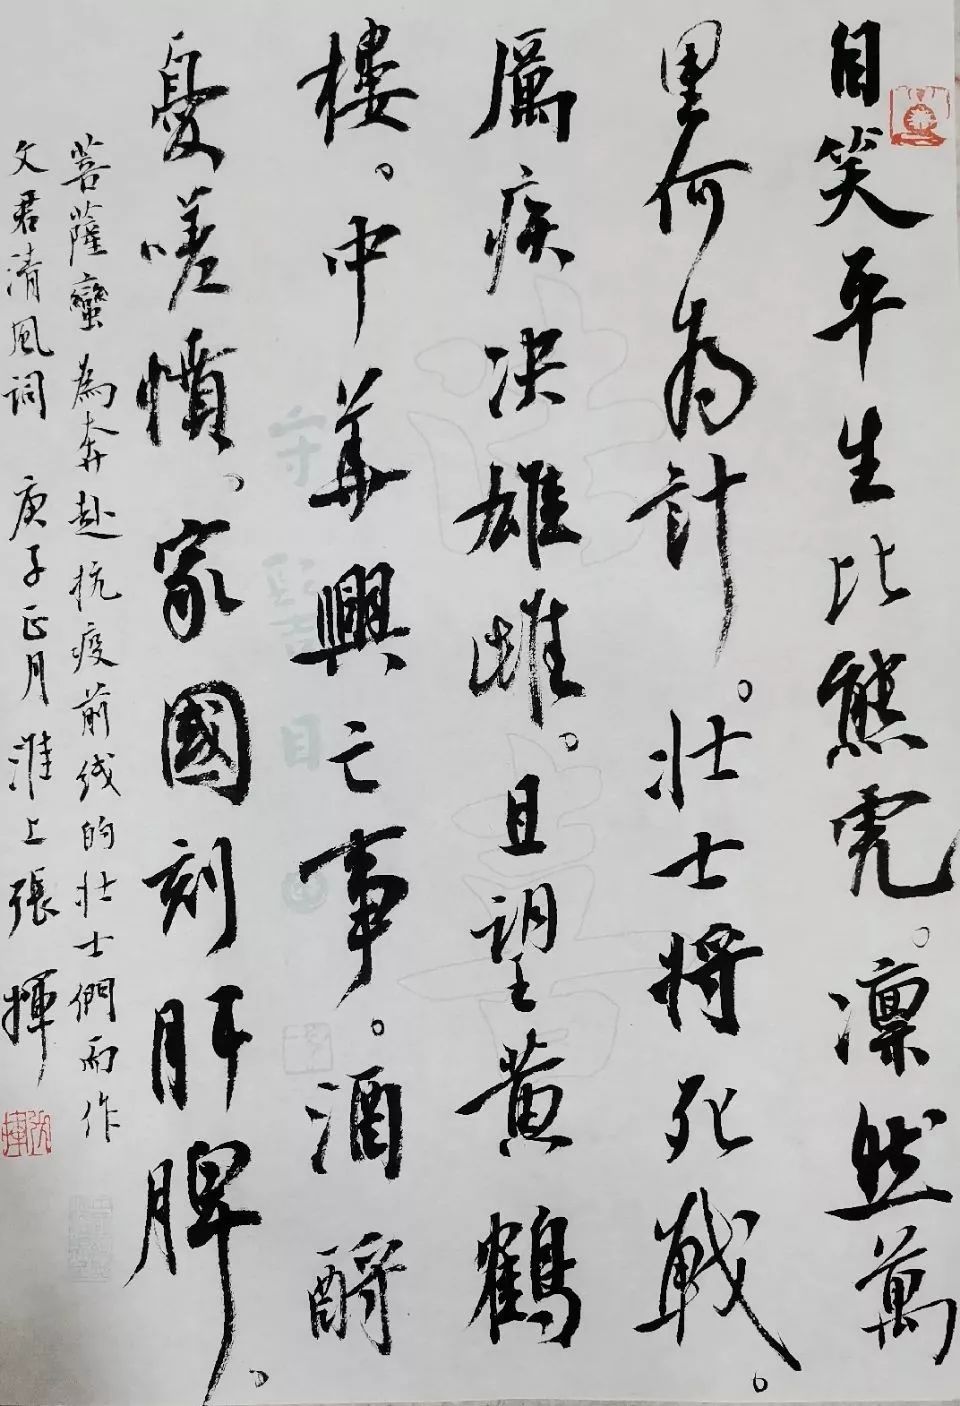 自笑平生比熊虎。凛然萬
里何为計。壮士将死戰。
厲疾决雄雌。且望黄鶴
樓。中華興亡事。酒酹
憂嗟憤。家國刻肝脾。
菩薩蠻 為奔赴抗疫前线的壮士們而作
文君清风词 庚子正月 淮上張揮